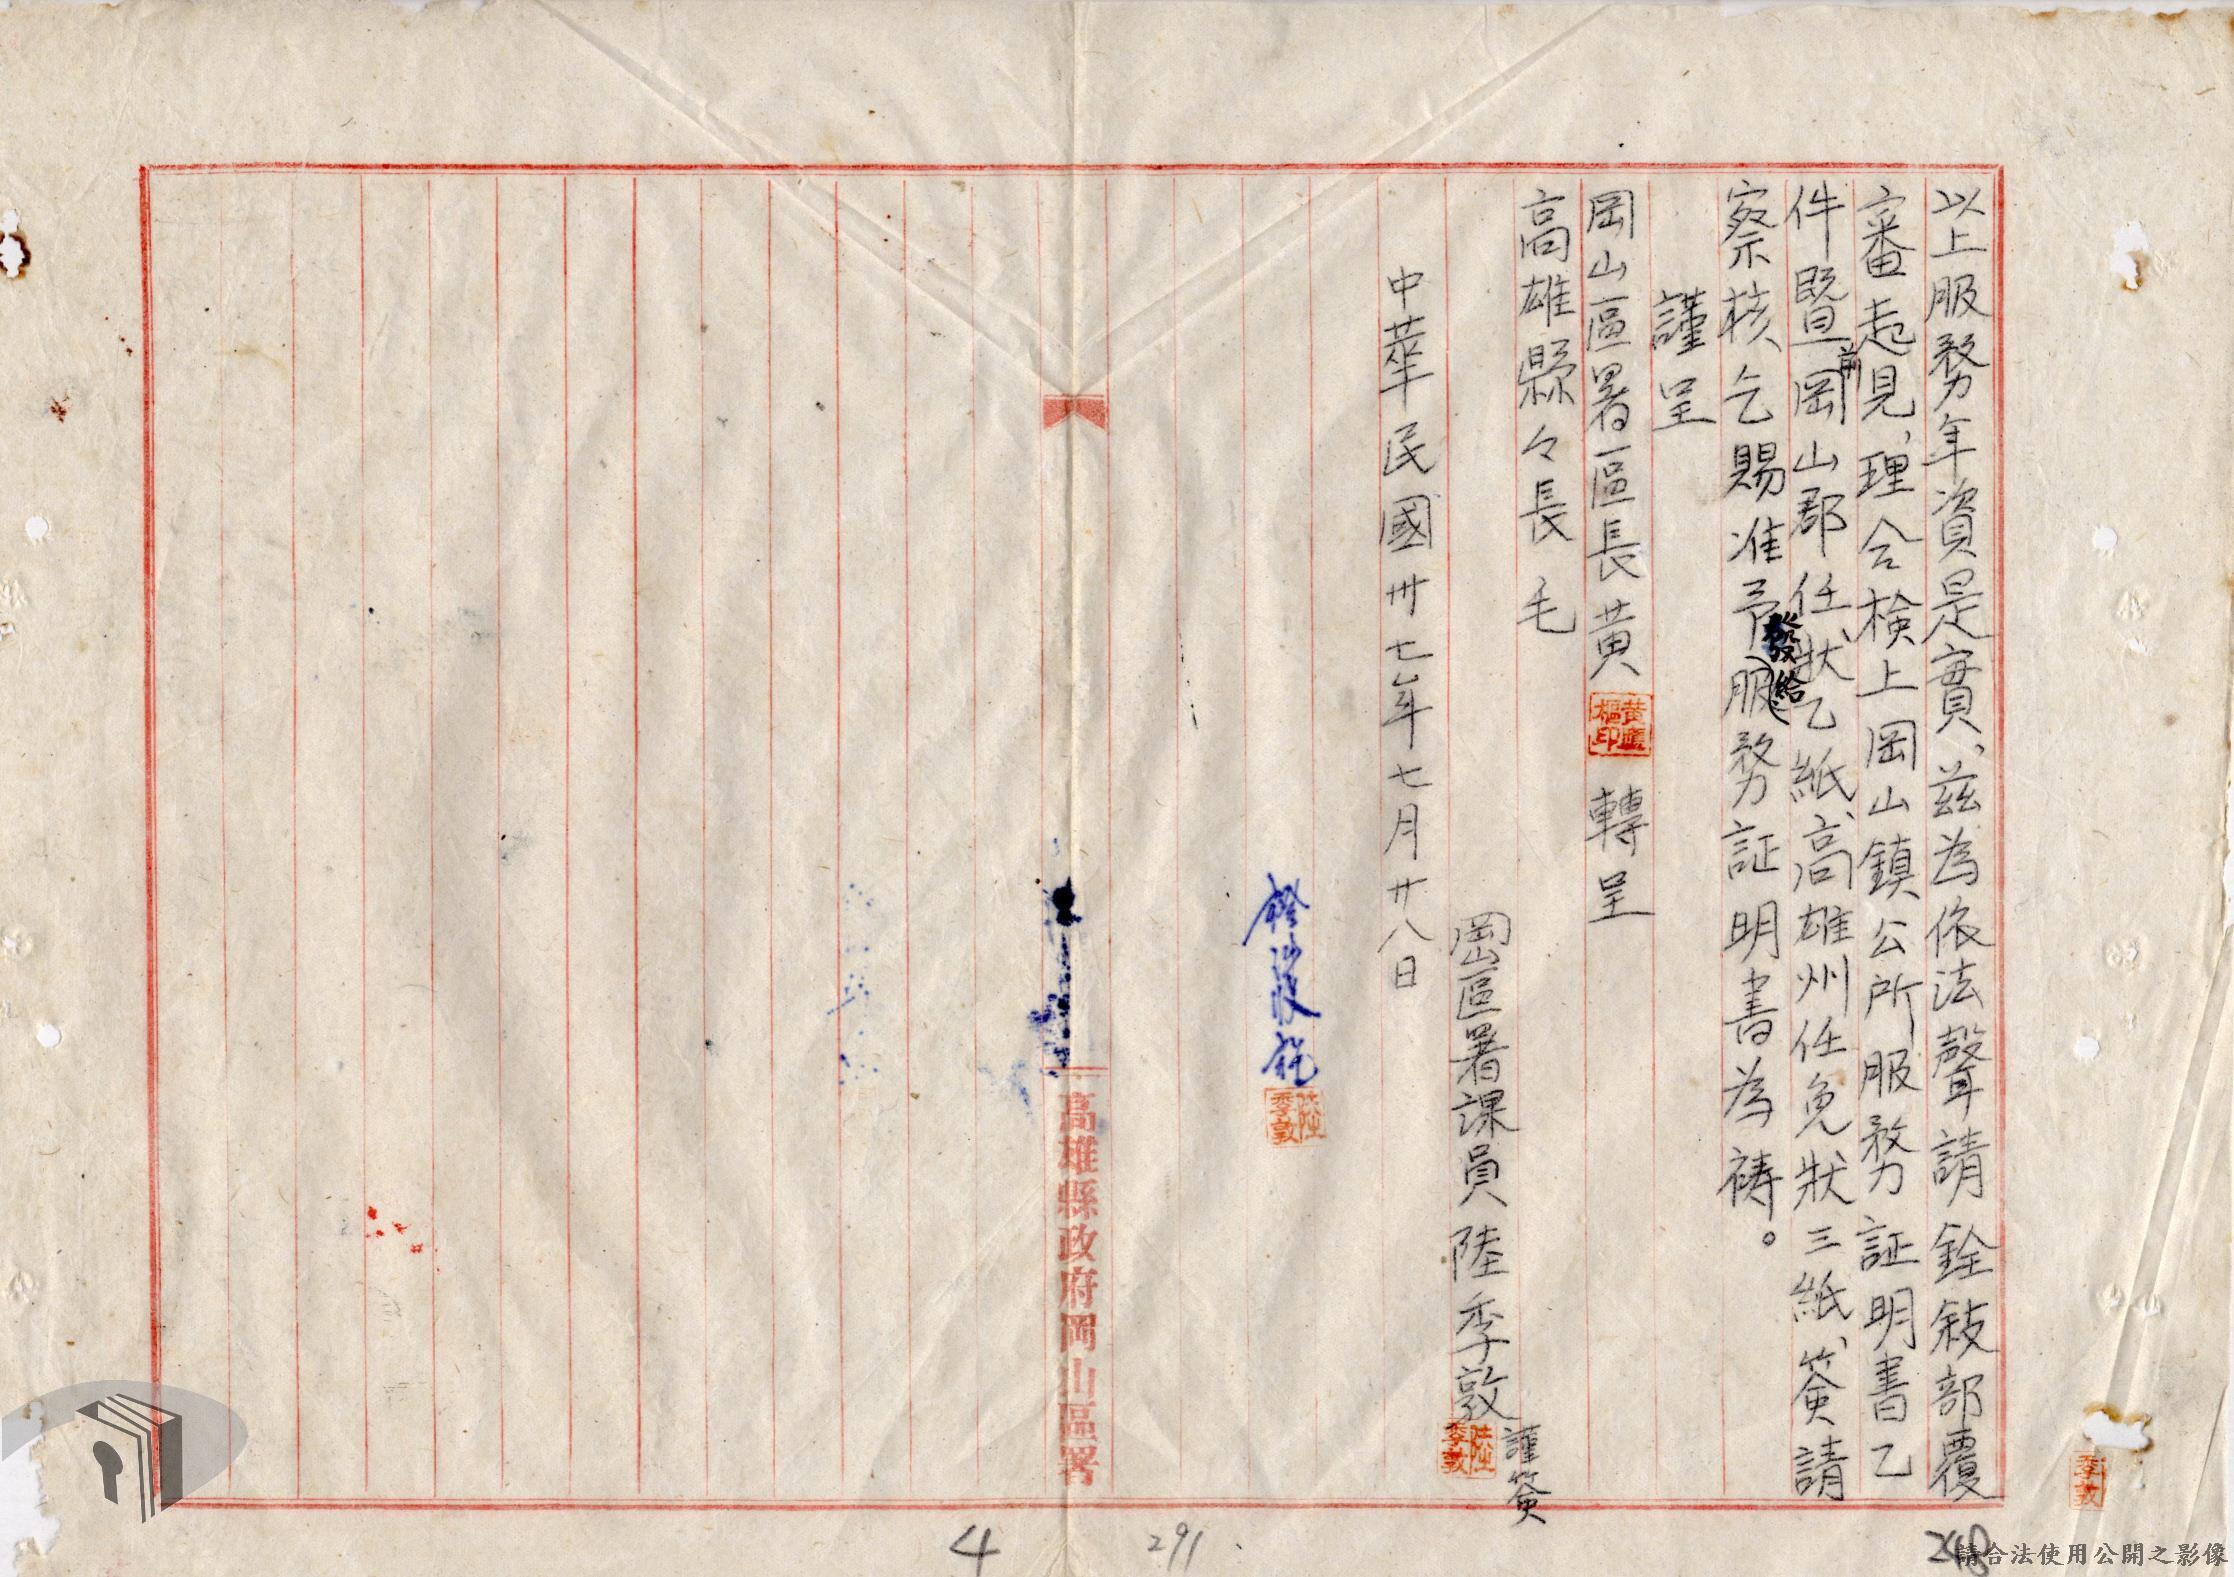 以上服務年資是實、茲為依法聲請銓敍部覆
審起見、理合檢上岡山鎮公所服務証明書乙
件暨前岡山郡任狀乙紙、高雄州任免狀三紙、簽請
察核乞賜准予發給服務証明書為禱。
謹呈
岡山區署區長黃 轉呈
高雄縣々長毛
岡山區署課員陸季敦謹簽
陸季敦
中華民國卅七年七月廿八日
陸季敦
高雄縣政府岡山區署
季敦
4
291
248
請合法使用公開之影像